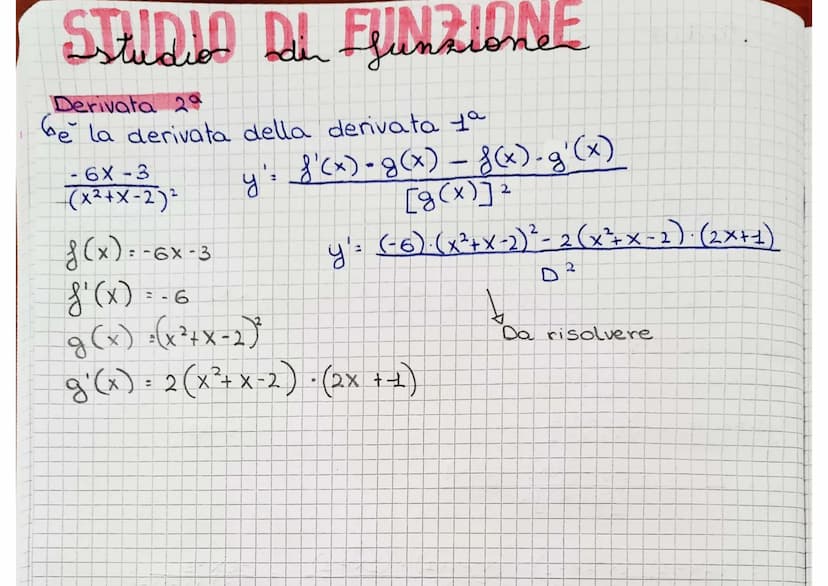 STUDIO DI FUNZIONE
Studio di funzione
Derivata 2ª
è la derivata della derivata 1ª
-6x-3
(x²+x-2)²
y' = f'(x)·g(x) - f(x)·g'(x)
[g(x)]²
f(x) = -6x-3
y' = (-6)·(x²+x-2)² - 2(x²+x-2)·(2x+1)
D²
f'(x) = -6
Da risolvere
g(x) = (x²+x-2)²
g'(x) = 2(x²+x-2)·(2x+1)